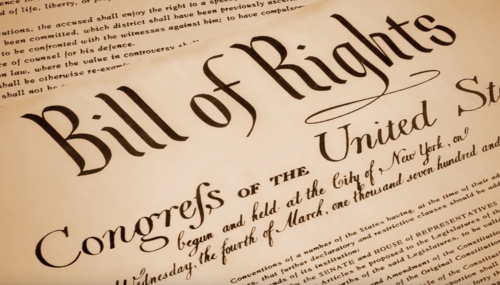 d of life, liberty, or
cutions, the accused shall enjoy the right to a
been committed, which district shall have been previously
to be confronted with the witnesses against him; to have
ce of counsel for his defence.
on law, where the value in controversy
hall be otherwise
shall not be
Bill of Rights
Congreſs OF THE United St
begun and held at the City of New York, on
Wednesday, the fourth of March, one thousand seven hundred and
Conventions of a number of the States having, at the time of their
that further declaratory and restrictive clauses should be
ends of its institution:
the SENATE and HOUSE of REPRESENTATIVES
Articles be proposed to the Legislatures of
of the said Legislatures, to be
and Amendment of the Constitution
of the Original Constitution